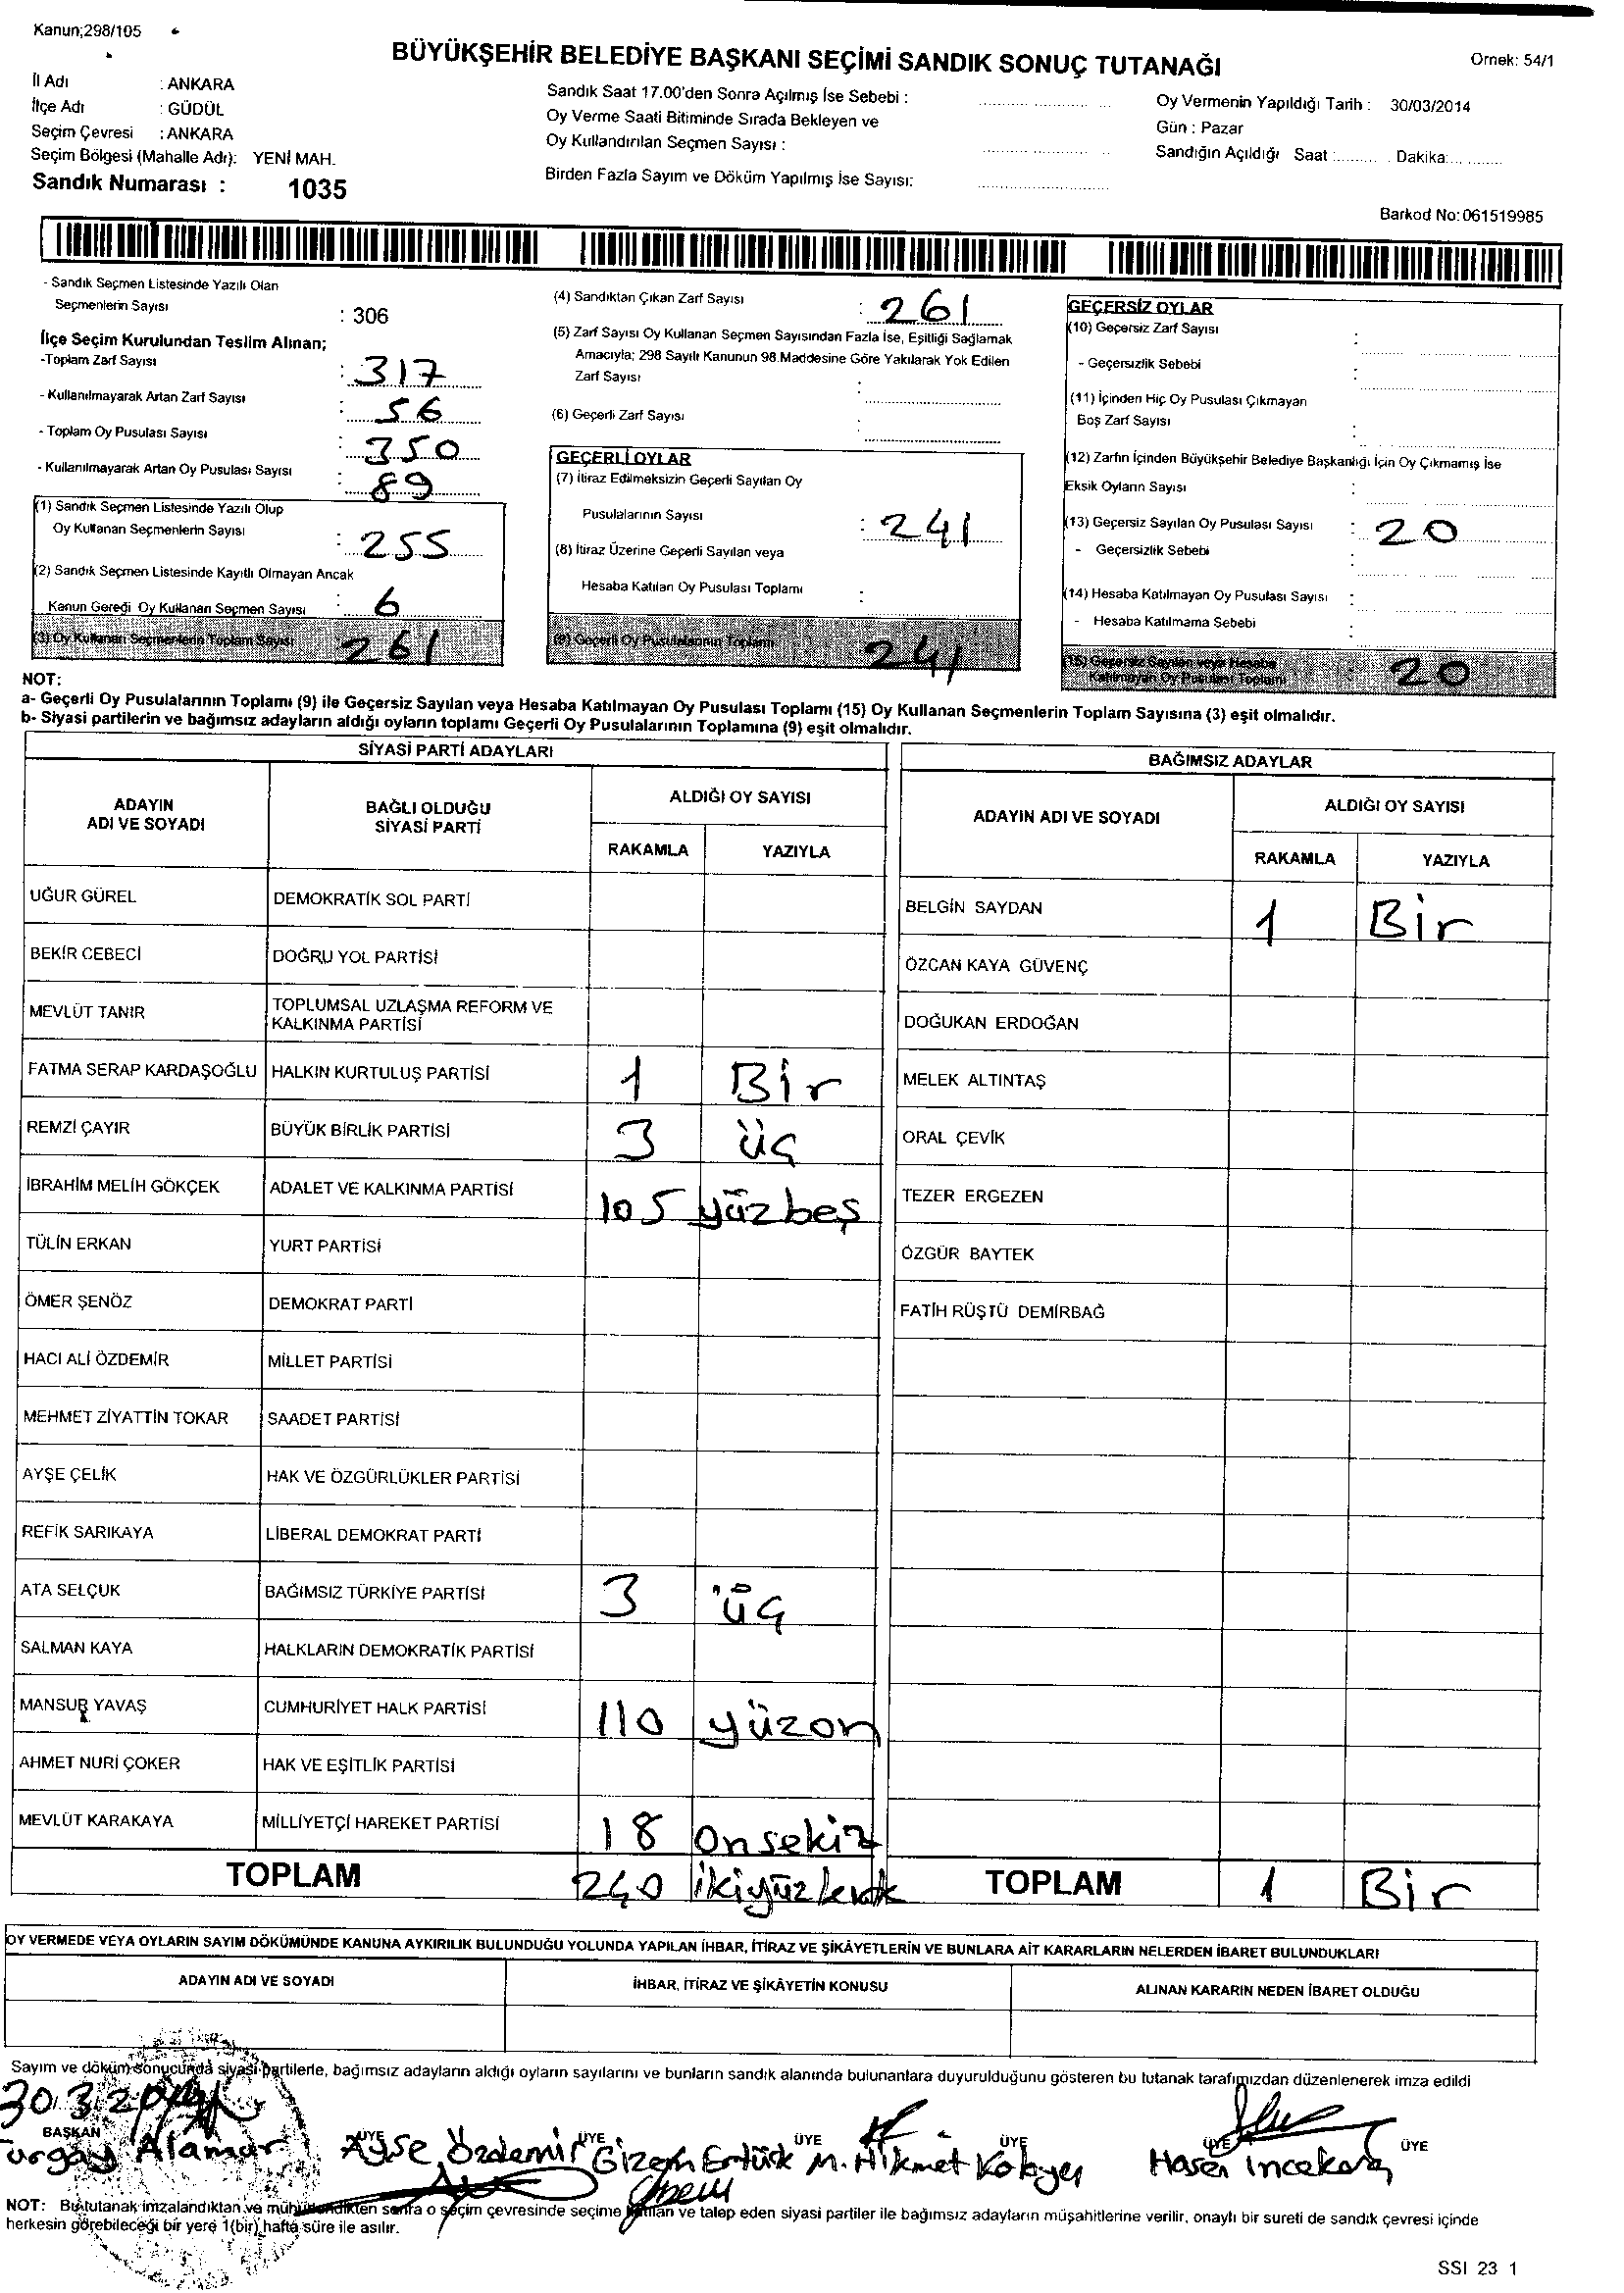 Kanun;298/105
BÜYÜKŞEHİR BELEDİYE BAŞKANI SEÇİMİ SANDIK SONUÇ TUTANAĞI
Ornek: 54/1
İl Adı : ANKARA
İlçe Adı : GÜDÜL
Seçim Çevresi : ANKARA
Seçim Bölgesi (Mahalle Adı): YENİ MAH.
Sandık Numarası : 1035
Sandık Saat 17.00'den Sonra Açılmış İse Sebebi :
Oy Verme Saati Bitiminde Sırada Bekleyen ve
Oy Kullandırılan Seçmen Sayısı :
Birden Fazla Sayım ve Döküm Yapılmış İse Sayısı:
Oy Vermenin Yapıldığı Tarih : 30/03/2014
Gün : Pazar
Sandığın Açıldığı Saat :.......... Dakika:............
Barkod No:061519985
- Sandık Seçmen Listesinde Yazılı Olan
Seçmenlerin Sayısı : 306
İlçe Seçim Kurulundan Teslim Alınan;
-Toplam Zarf Sayısı : 317
- Kullanılmayarak Artan Zarf Sayısı : 56
- Toplam Oy Pusulası Sayısı : 350
- Kullanılmayarak Artan Oy Pusulası Sayısı : 89
(1) Sandık Seçmen Listesinde Yazılı Olup
Oy Kullanan Seçmenlerin Sayısı : 255
(2) Sandık Seçmen Listesinde Kayıtlı Olmayan Ancak
Kanun Gereği Oy Kullanan Seçmen Sayısı : 6
(3) Oy Kullanan Seçmenlerin Toplam Sayısı 261
(4) Sandıktan Çıkan Zarf Sayısı : 261
(5) Zarf Sayısı Oy Kullanan Seçmen Sayısından Fazla İse, Eşitliği Sağlamak
Amacıyla; 298 Sayılı Kanunun 98.Maddesine Göre Yakılarak Yok Edilen
Zarf Sayısı :
(6) Geçerli Zarf Sayısı :
GEÇERLİ OYLAR
(7) İtiraz Edilmeksizin Geçerli Sayılan Oy
Pusulalarının Sayısı : 241
(8) İtiraz Üzerine Geçerli Sayılan veya
Hesaba Katılan Oy Pusulası Toplamı :
(9) Geçerli Oy Pusulalarının Toplamı 241
GEÇERSİZ OYLAR
(10) Geçersiz Zarf Sayısı :
- Geçersizlik Sebebi :
(11) İçinden Hiç Oy Pusulası Çıkmayan
Boş Zarf Sayısı :
(12) Zarfın İçinden Büyükşehir Belediye Başkanlığı İçin Oy Çıkmamış İse
Eksik Oyların Sayısı :
(13) Geçersiz Sayılan Oy Pusulası Sayısı : 20
- Geçersizlik Sebebi :
(14) Hesaba Katılmayan Oy Pusulası Sayısı :
- Hesaba Katılmama Sebebi :
(15) Geçersiz Sayılan veya Hesaba
Katılmayan Oy Pusulası Toplamı : 20
NOT:
a- Geçerli Oy Pusulalarının Toplamı (9) ile Geçersiz Sayılan veya Hesaba Katılmayan Oy Pusulası Toplamı (15) Oy Kullanan Seçmenlerin Toplam Sayısına (3) eşit olmalıdır.
b- Siyasi partilerin ve bağımsız adayların aldığı oyların toplamı Geçerli Oy Pusulalarının Toplamına (9) eşit olmalıdır.
SİYASİ PARTİ ADAYLARI
ADAYIN ADI VE SOYADI
BAĞLI OLDUĞU SİYASİ PARTİ
ALDIĞI OY SAYISI
RAKAMLA YAZIYLA
UĞUR GÜREL DEMOKRATİK SOL PARTİ
BEKİR CEBECİ DOĞRU YOL PARTİSİ
MEVLÜT TANIR TOPLUMSAL UZLAŞMA REFORM VE KALKINMA PARTİSİ
FATMA SERAP KARDAŞOĞLU HALKIN KURTULUŞ PARTİSİ 1 Bir
REMZİ ÇAYIR BÜYÜK BİRLİK PARTİSİ 3 üç
İBRAHİM MELİH GÖKÇEK ADALET VE KALKINMA PARTİSİ 105 yüzbeş
TÜLİN ERKAN YURT PARTİSİ
ÖMER ŞENÖZ DEMOKRAT PARTİ
HACI ALİ ÖZDEMİR MİLLET PARTİSİ
MEHMET ZİYATTİN TOKAR SAADET PARTİSİ
AYŞE ÇELİK HAK VE ÖZGÜRLÜKLER PARTİSİ
REFİK SARIKAYA LİBERAL DEMOKRAT PARTİ
ATA SELÇUK BAĞIMSIZ TÜRKİYE PARTİSİ 3 üç
SALMAN KAYA HALKLARIN DEMOKRATİK PARTİSİ
MANSUR YAVAŞ CUMHURİYET HALK PARTİSİ 110 yüzon
AHMET NURİ ÇOKER HAK VE EŞİTLİK PARTİSİ
MEVLÜT KARAKAYA MİLLİYETÇİ HAREKET PARTİSİ 18 onsekiz
TOPLAM 240 ikiyüzkırk
BAĞIMSIZ ADAYLAR
ADAYIN ADI VE SOYADI
ALDIĞI OY SAYISI
RAKAMLA YAZIYLA
BELGİN SAYDAN 1 Bir
ÖZCAN KAYA GÜVENÇ
DOĞUKAN ERDOĞAN
MELEK ALTINTAŞ
ORAL ÇEVİK
TEZER ERGEZEN
ÖZGÜR BAYTEK
FATİH RÜŞTÜ DEMİRBAĞ
TOPLAM 1 Bir
OY VERMEDE VEYA OYLARIN SAYIM DÖKÜMÜNDE KANUNA AYKIRILIK BULUNDUĞU YOLUNDA YAPILAN İHBAR, İTİRAZ VE ŞİKÂYETLERİN VE BUNLARA AİT KARARLARIN NELERDEN İBARET BULUNDUKLARI
ADAYIN ADI VE SOYADI İHBAR, İTİRAZ VE ŞİKÂYETİN KONUSU ALINAN KARARIN NEDEN İBARET OLDUĞU
Sayım ve döküm sonucunda siyasi partilerle, bağımsız adayların aldığı oyların sayılarını ve bunların sandık alanında bulunanlara duyurulduğunu gösteren bu tutanak tarafımızdan düzenlenerek imza edildi
30.3.2014
BAŞKAN ÜYE ÜYE ÜYE ÜYE ÜYE ÜYE
Ayşe Özdemir Gizem Ertürk M. Hikmet
NOT: Bu tutanak imzalandıktan ve mühürlendikten sonra o seçim çevresinde seçime katılan ve talep eden siyasi partiler ile bağımsız adayların müşahitlerine verilir, onaylı bir sureti de sandık çevresi içinde
herkesin görebileceği bir yere 1(bir) hafta süre ile asılır.
SSI 23 1